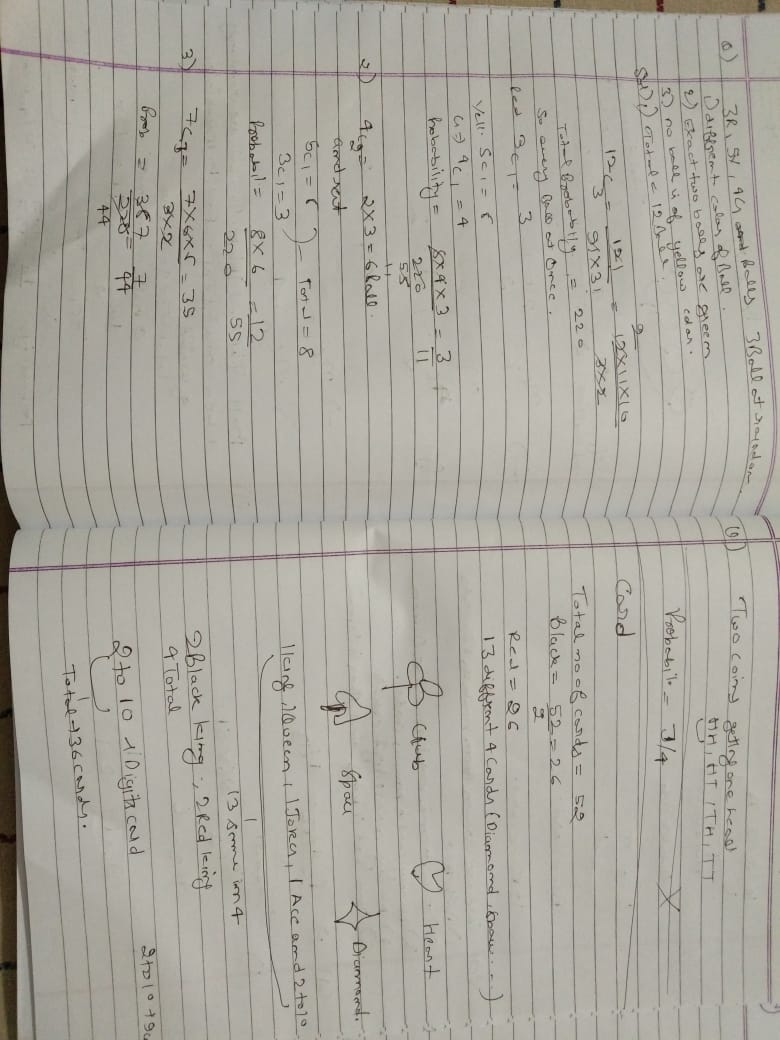 Q) 3R, 5Y, 4G and Balls 3 Ball at random
1) different color of Ball.
2) Exact two balls are green
3) no ball is of yellow color.
Sol) 1) Total = 12 Balls.
12C3 = 12! / 9! × 3! = 12×11×10 / 3×2
Total Probability = 220
So every Ball at Once.
Red 3C1 = 3
Yell: 5C1 = 5
G => 4C1 = 4
Probability = 5×4×3 / 220 = 3/11
55
2) 4C2 = 2×3 = 6 ball.
and rest
5C1 = 5
3C1 = 3 ) - Total = 8
Probabil = 8×6 / 220 = 12/55.
3) 7C3 = 7×6×5 / 3×2 = 35
Prob = 35 7 / 220 = 7/44
44
Q) Two coins getting one head
HH, HT, TH, TT
Probabilit = 3/4
Card
Total no of cards = 52
Black = 52/2 = 26
Red = 26
13 different 4 Cards (Diamond, Spau ...)
Chub Heart
Spau Diamond.
1 king, 1 Queen, 1 Joker, 1 Acc and 2 to 10
13 same in 4
2 Black king, 2 Red king
4 Total
2 to 10 Digits card
2 to 10 → 9
Total → 36 cards.